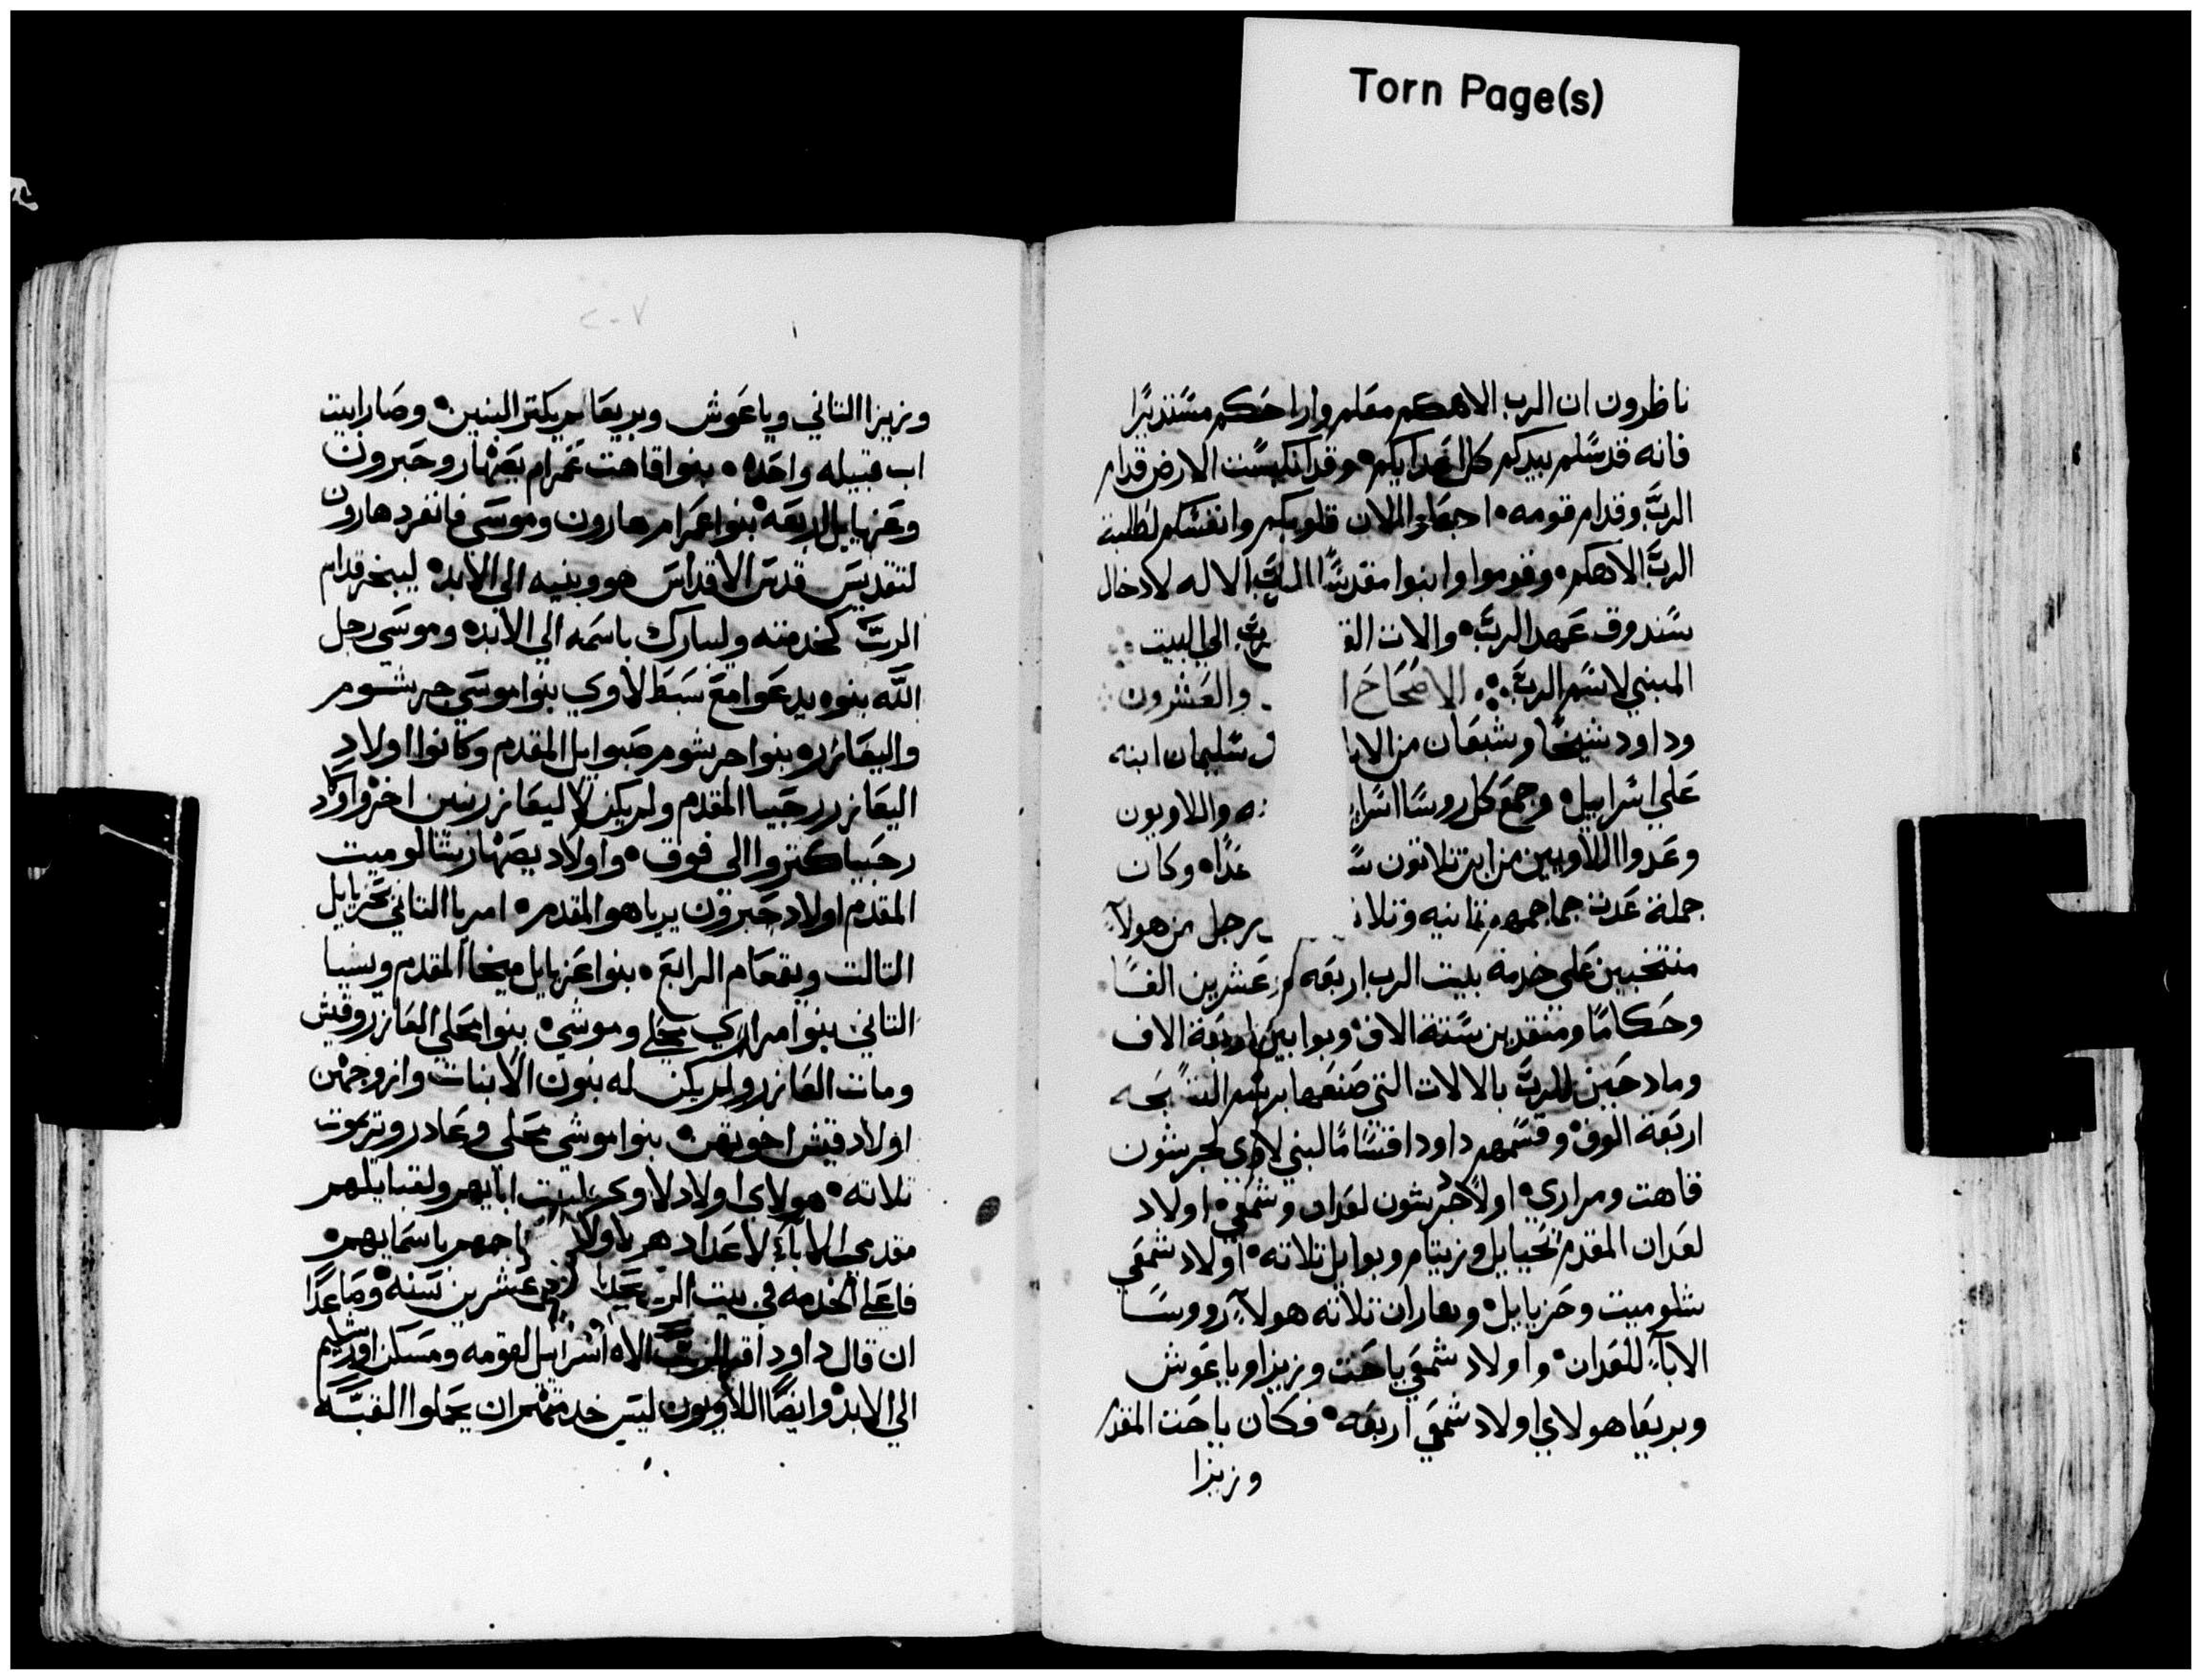 Torn Page(s)
ناظرون ان الرب الاهكم معكم واراحكم مستديرًا
فانه قد سلم بيدكم كل اعدايكم وقد انكبست الارض قدام
الربّ وقدام قومه اجعلوا الان قلوبكم وانفسكم لطلبة
الربّ الاهكم وقوموا وابنوا مقدسًا للربّ الاله لادخال
سندوق عهد الربّ والات الق ربّ الي البيت
المبني لاسم الربّ الاصحاح ا والعشرون
وداود شيخًا وشبعان من الايا سليمان ابنه
علي اسراييل وجمع كل روسا اسرا ه واللاويون
وعدوا اللاويين من ابن تلاتون س عدًا وكان
جملة عدت جماجمهم تمانيه وتلات رجل من هولآء
منتخبين علي خدمة بيت الرب اربعه وعشرين الفًا
وحكامًا ومتقدين ستة الاف وبوابين اربعة الاف
ومادحين للربّ بالالات التي صنعها
اربعة الوف وقسمهم داود اقسامًا لبني لاوي لجرشون
قاهت ومراري اولاد جرشون لعدان وشمعي اولاد
لعدان المقدم يحيايل وزيتام ويوايل تلاته اولاد شمعي
شلوميت وحزيايل وهاران تلاته هولآء رووسًا
الابآء للعدان واولاد شمعي ياحت وزيزا وياعوش
وبريعا هولاي اولاد شمعي اربعه فكان ياحت المقدم
وزيزا
٢٠٧
وزيزا التاني وياعوش وبريعا لم يكتر البنين وصارا بيت
اب قبيله واحده بنوا قاهت عمرام يصهار وحبرون
وعزيايل اربعه بنوا عمرام هارون وموسي فانفرد هارون
لتقديس قدس الاقداس هو وبنيه الي الابد ليبخر قدام
الربّ كخدمته وليبارك باسمه الي الابد وموسي رجل
الله بنوه يدعوا مع سبط لاوي بنوا موسي جرشوم
واليعازر بنوا جرشوم صبوايل المقدم وكانوا اولاد
اليعازر رحبيا المقدم ولم يكن لاليعازر بنين اخر واولاد
رحبيا كتروا الي فوق واولاد يصهار شالوميت
المقدم اولاد حبرون يرياهو المقدم امريا التاني يحزيايل
التالت ويقمعام الرابع بنوا عزيايل ميخا المقدم ويسيا
التاني بنوا مراري محلي وموشي بنوا محلي العازر وقيش
ومات العازر ولم يكن له بنون الا بنات وازوجهن
اولاد قيش اخوتهن بنوا موشي محلي وعادر ويريموت
تلاته هولاي اولاد لاوي لبيت ابايهم ولقبايلهم
مقدمي الابآء لاعدادهم جماجمهم باسمايهم
فاعلي الخدمه في بيت الربّ عشرين سنه وصاعدًا
ان قال داود الربّ الاه اسراييل لقومه ومسكن اورشليم
الي الابد وايضًا اللاويون ليس خدمتهم ان يحملوا القبّه